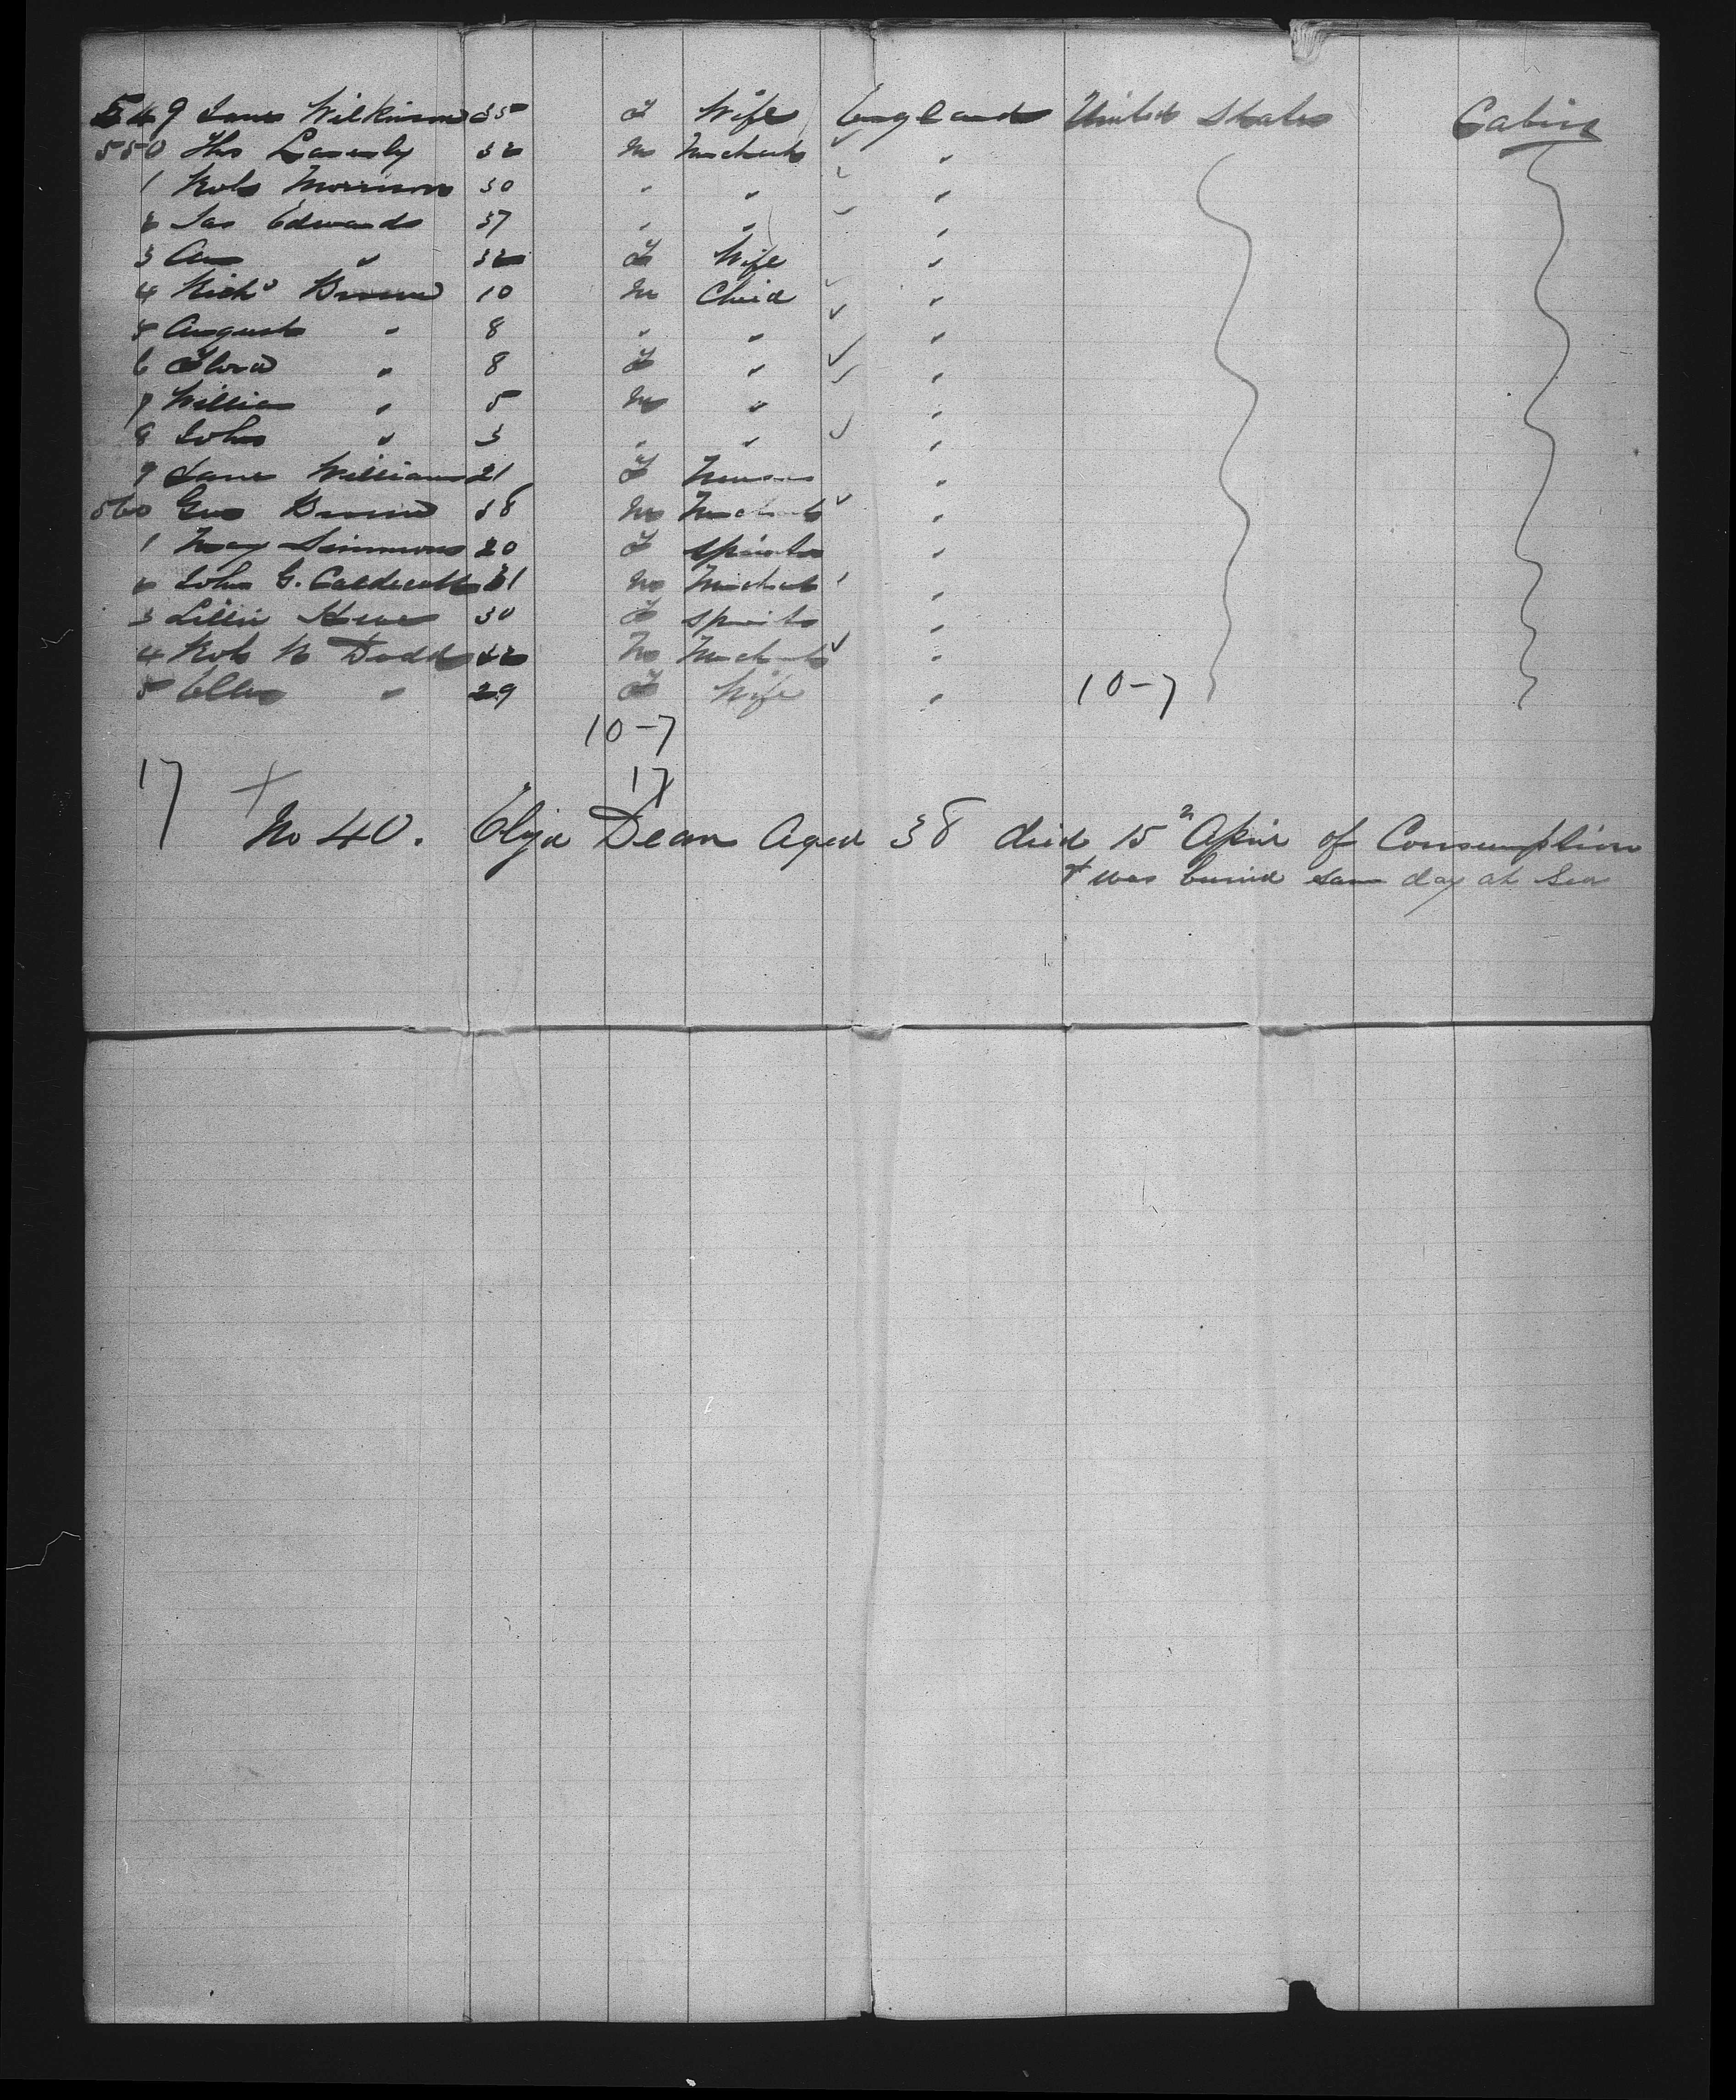 549 Jane Wilkinson 35 F Wife England United States Cabin
550 Thos 32 M Merchant ✓ "
1 Robt Morrison 30 " " "
2 Jas Edwards 37 " " "
3 Ann " 32 F Wife "
4 Richd Brown 10 M Child "
5 August " 8 " " "
6 Flora " 8 F " "
7 William " 5 M " "
8 John " 3 " " "
9 Jane Williams 21 F "
560 Geo Brown 38 M Merchant "
1 May Simmons 20 F Spinster "
2 John G. Caldecott 31 M Merchant "
3 Lillie 30 F Spinster "
4 Robt N Dodd 42 M Merchant "
5 Ellen " 29 F Wife " 10-7
10-7
17 17
+ No 40. Eliza Dean Aged 38 died 15th April of Consumption
+ was buried same day at Sea